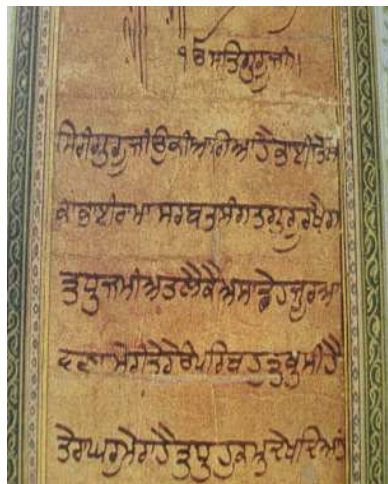 ੴ ਸਤਿਗੁਰੂ ਜੀ।
ਸਿਰੀ ਗੁਰੂ ਜੀਉ ਕੀ ਆਗਿਆ ਹੈ ਭਾਈ ਤਿਲੋ
ਕਾ ਭਾਈ ਰਾਮਾ ਸਰਬਤ ਸੰਗਤ ਗੁਰੂ ਰਖੈਗਾ
ਤੁਧੁ ਜਮੀਅਤ ਲੈਕੈ ਅਸਾਡੇ ਹਜੂਰ ਆ
ਵਣਾ ਮੇਰੀ ਤੇਰੇ ਉਪਰਿ ਬਹੁਤੁ ਖੁਸੀ ਹੈ
ਤੇਰਾ ਘਰੁ ਮੇਰਾ ਹੈ ਤੁਧੁ ਹੁਕਮੁ ਦੇਖਦਿਆਂ